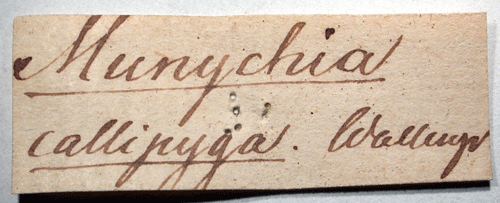 Munychia
callipyga. Wallengr